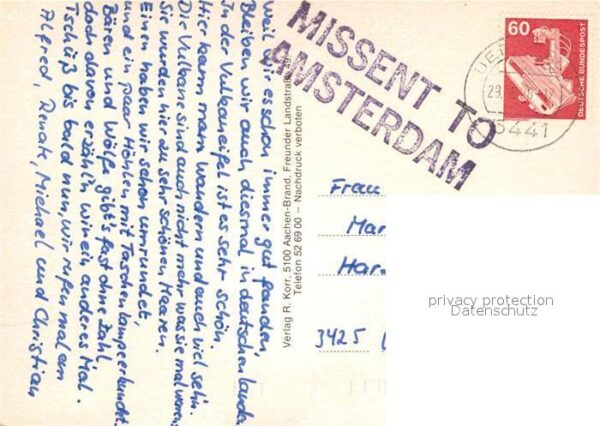 Weil wir es schon immer gut fanden,
Bleiben wir auch diesmal in deutschen Landen
In der Vulkaneifel ist es sehr schön.
Hier kann man wandern und auch viel sehn.
Die Vulkane sind auch nicht mehr was sie mal waren
Sie wurden hier zu sehr schönen Maaren.
Eine haben wir schon umrundet,
und ein paar Höhlen mit Taschenlampe erkundet.
Bären und Wölfe gibt's fast ohne Zahl
doch davon erzähl'n wir ein anderes Mal.
Tschüß bis bald nun, wir rufen mal an
Alfred, Renate, Michael und Christian
Verlag R. Korr, 5100 Aachen-Brand, Freunder Landstraße 49
Telefon 52 69 00 – Nachdruck verboten
MISSENT TO
AMSTERDAM
60
DEUTSCHE BUNDESPOST
29.
5441
Frau
Mar
Har.
3425
privacy protection
Datenschutz